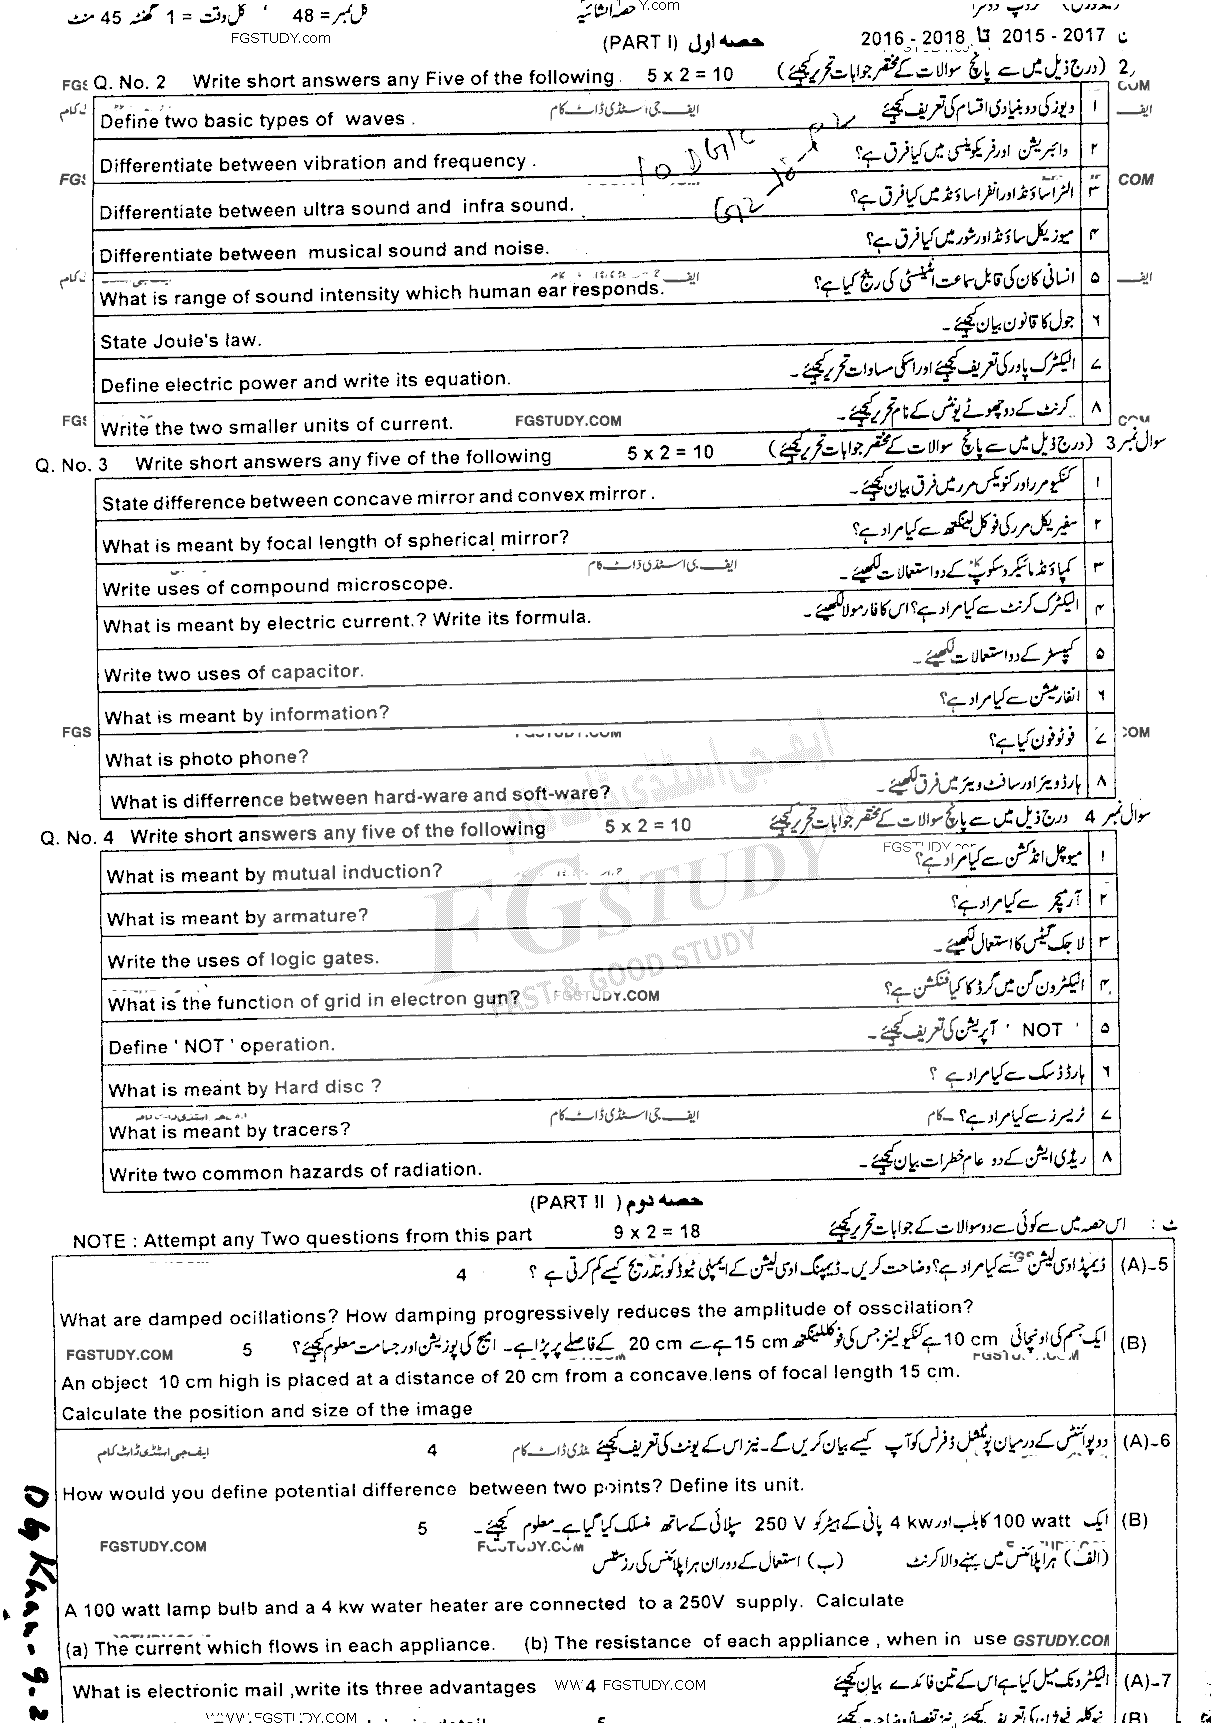 کل نمبر = 48 ، کل وقت = 1 گھنٹہ 45 منٹ
حصہ انشائیہ
Y.com
FGSTUDY.com
(PART I) حصہ اول
2015 - 2017 تا 2016 - 2018
Q. No. 2 Write short answers any Five of the following. 5 x 2 = 10 (درج ذیل میں سے پانچ سوالات کے مختصر جوابات تحریر کیجئے) 2
Define two basic types of waves . ویوز کی دو بنیادی اقسام کی تعریف کیجئے ۱
Differentiate between vibration and frequency . وائبریشن اور فریکوئنسی میں کیا فرق ہے؟ ۲
Differentiate between ultra sound and infra sound. الٹرا ساؤنڈ اور انفرا ساؤنڈ میں کیا فرق ہے؟ ۳
Differentiate between musical sound and noise. میوزیکل ساؤنڈ اور شور میں کیا فرق ہے؟ ۴
What is range of sound intensity which human ear responds. انسانی کان کی قابل سماعت انٹینسٹی کی رینج کیا ہے؟ ۵
State Joule's law. جول کا قانون بیان کیجئے۔ ۶
Define electric power and write its equation. الیکٹرک پاور کی تعریف کیجئے اور اسکی مساوات تحریر کیجئے۔ ۷
Write the two smaller units of current. FGSTUDY.COM کرنٹ کے دو چھوٹے یونٹس کے نام تحریر کیجئے۔ ۸
Q. No. 3 Write short answers any five of the following 5 x 2 = 10 (درج ذیل میں سے پانچ سوالات کے مختصر جوابات تحریر کیجئے) سوال نمبر 3
State difference between concave mirror and convex mirror . کنکیو مرر اور کنویکس مرر میں فرق بیان کیجئے۔ ۱
What is meant by focal length of spherical mirror? سفیریکل مرر کی فوکل لینگتھ سے کیا مراد ہے؟ ۲
Write uses of compound microscope. ایف جی اسٹڈی ڈاٹ کام کمپاؤنڈ مائیکروسکوپ کے دو استعمالات لکھیئے۔ ۳
What is meant by electric current.? Write its formula. الیکٹرک کرنٹ سے کیا مراد ہے؟ اس کا فارمولا لکھیئے۔ ۴
Write two uses of capacitor. کپیسٹر کے دو استعمالات لکھیئے۔ ۵
What is meant by information? انفارمیشن سے کیا مراد ہے؟ ۶
What is photo phone? فوٹو فون کیا ہے؟ ۷
What is differrence between hard-ware and soft-ware? ہارڈ ویئر اور سافٹ ویئر میں فرق لکھیئے۔ ۸
Q. No. 4 Write short answers any five of the following 5 x 2 = 10 درج ذیل میں سے پانچ سوالات کے مختصر جوابات تحریر کیجئے سوال نمبر 4
What is meant by mutual induction? میوچل انڈکشن سے کیا مراد ہے؟ ۱
What is meant by armature? آرمیچر سے کیا مراد ہے؟ ۲
Write the uses of logic gates. لاجک گیٹس کا استعمال لکھیئے۔ ۳
What is the function of grid in electron gun? FGSTUDY.COM الیکٹرون گن میں گرڈ کا کیا فنکشن ہے؟ ۴
Define ' NOT ' operation. ' NOT ' آپریشن کی تعریف کیجئے۔ ۵
What is meant by Hard disc ? ہارڈ ڈسک سے کیا مراد ہے ؟ ۶
What is meant by tracers? ایف جی اسٹڈی ڈاٹ کام ٹریسرز سے کیا مراد ہے؟ ۷
Write two common hazards of radiation. ریڈی ایشن کے دو عام خطرات بیان کیجئے۔ ۸
FGSTUDY
FAST & GOOD STUDY
(PART II ) حصہ دوم
NOTE : Attempt any Two questions from this part 9 x 2 = 18 اس حصہ میں سے کوئی سے دو سوالات کے جوابات تحریر کیجئے
5-(A) ڈیمپڈ اوسی لیشن سے کیا مراد ہے؟ وضاحت کریں۔ ڈیمپنگ اوسی لیشن کے ایمپلی ٹیوڈ کو بتدریج کیسے کم کرتی ہے ؟ 4
What are damped ocillations? How damping progressively reduces the amplitude of osscilation?
(B) ایک جسم کی اونچائی 10 cm ہے کنکیو لینز جس کی فوکل لینگتھ 15 cm ہے سے 20 cm کے فاصلے پر پڑا ہے۔ امیج کی پوزیشن اور جسامت معلوم کیجئے؟ 5
FGSTUDY.COM
An object 10 cm high is placed at a distance of 20 cm from a concave lens of focal length 15 cm.
Calculate the position and size of the image
6-(A) دو پوائنٹس کے درمیان پوٹینشل ڈفرنس کو آپ کیسے بیان کریں گے۔ نیز اس کے یونٹ کی تعریف کیجئے 4
ایف جی اسٹڈی ڈاٹ کام
How would you define potential difference between two points? Define its unit.
(B) ایک 100 watt کا بلب اور 4 kw پانی کے ہیٹر کو 250 V سپلائی کے ساتھ منسلک کیا گیا ہے۔ معلوم کیجئے۔ 5
FGSTUDY.COM FGSTUDY.COM
(الف) ہر اپلائنس میں بہنے والا کرنٹ (ب) استعمال کے دوران ہر اپلائنس کی رزسٹنس
A 100 watt lamp bulb and a 4 kw water heater are connected to a 250V supply. Calculate
(a) The current which flows in each appliance. (b) The resistance of each appliance , when in use GSTUDY.COM
D G Khan - 9-2
What is electronic mail ,write its three advantages WW 4 FGSTUDY.COM الیکٹرونک میل کیا ہے اس کے تین فائدے بیان کیجئے 7-(A)